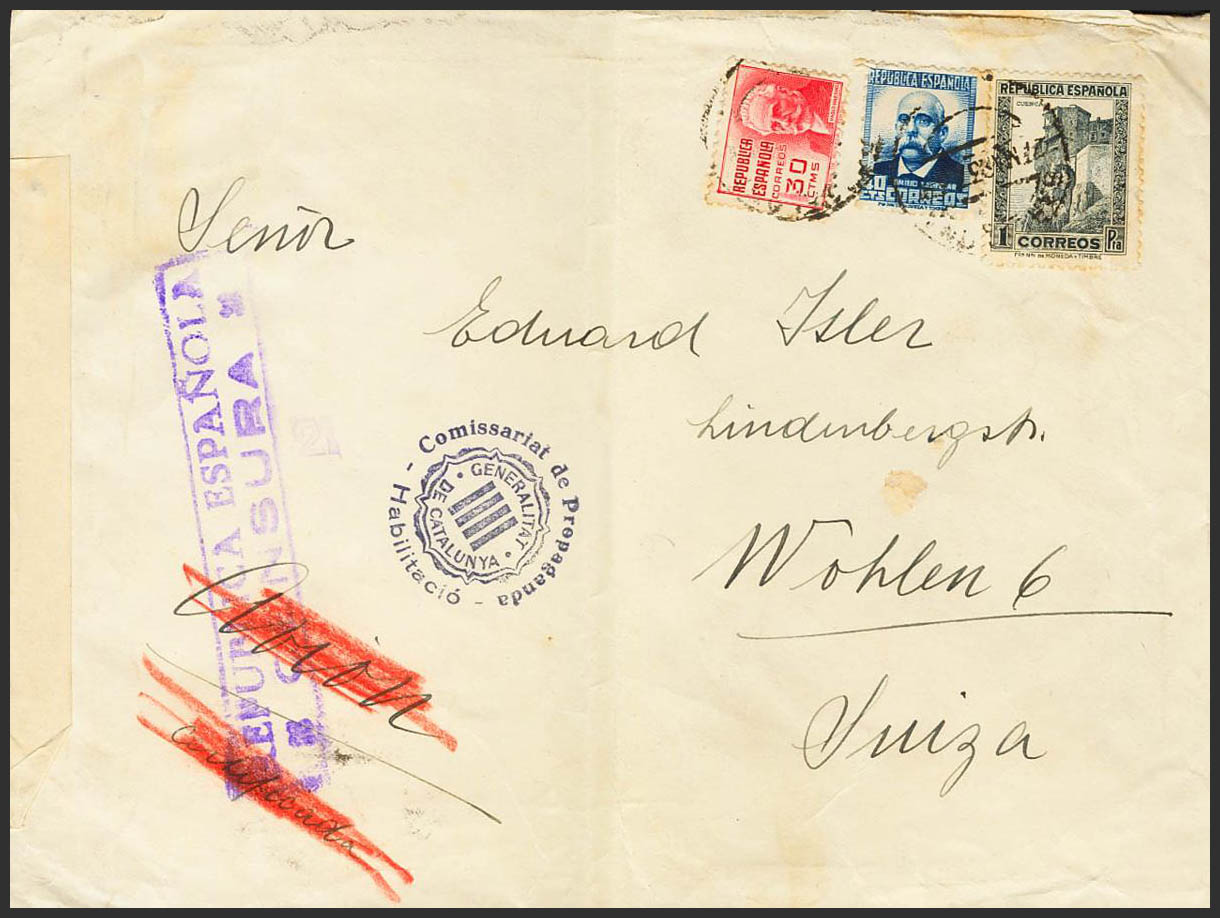 REPUBLICA
ESPAÑOLA
CORREOS
30
CTMS
REPUBLICA ESPAÑOLA
EMILIO CASTELAR
40
CTS CORREOS
REPUBLICA ESPAÑOLA
CUENCA
1 CORREOS Pta
Señor
Eduard Isler
Lindenbergstr.
Wohlen 6
Suiza
REPUBLICA ESPAÑOLA
CENSURA
- Comissariat de Propaganda
- Habilitació
GENERALITAT
DE CATALUNYA
Avión